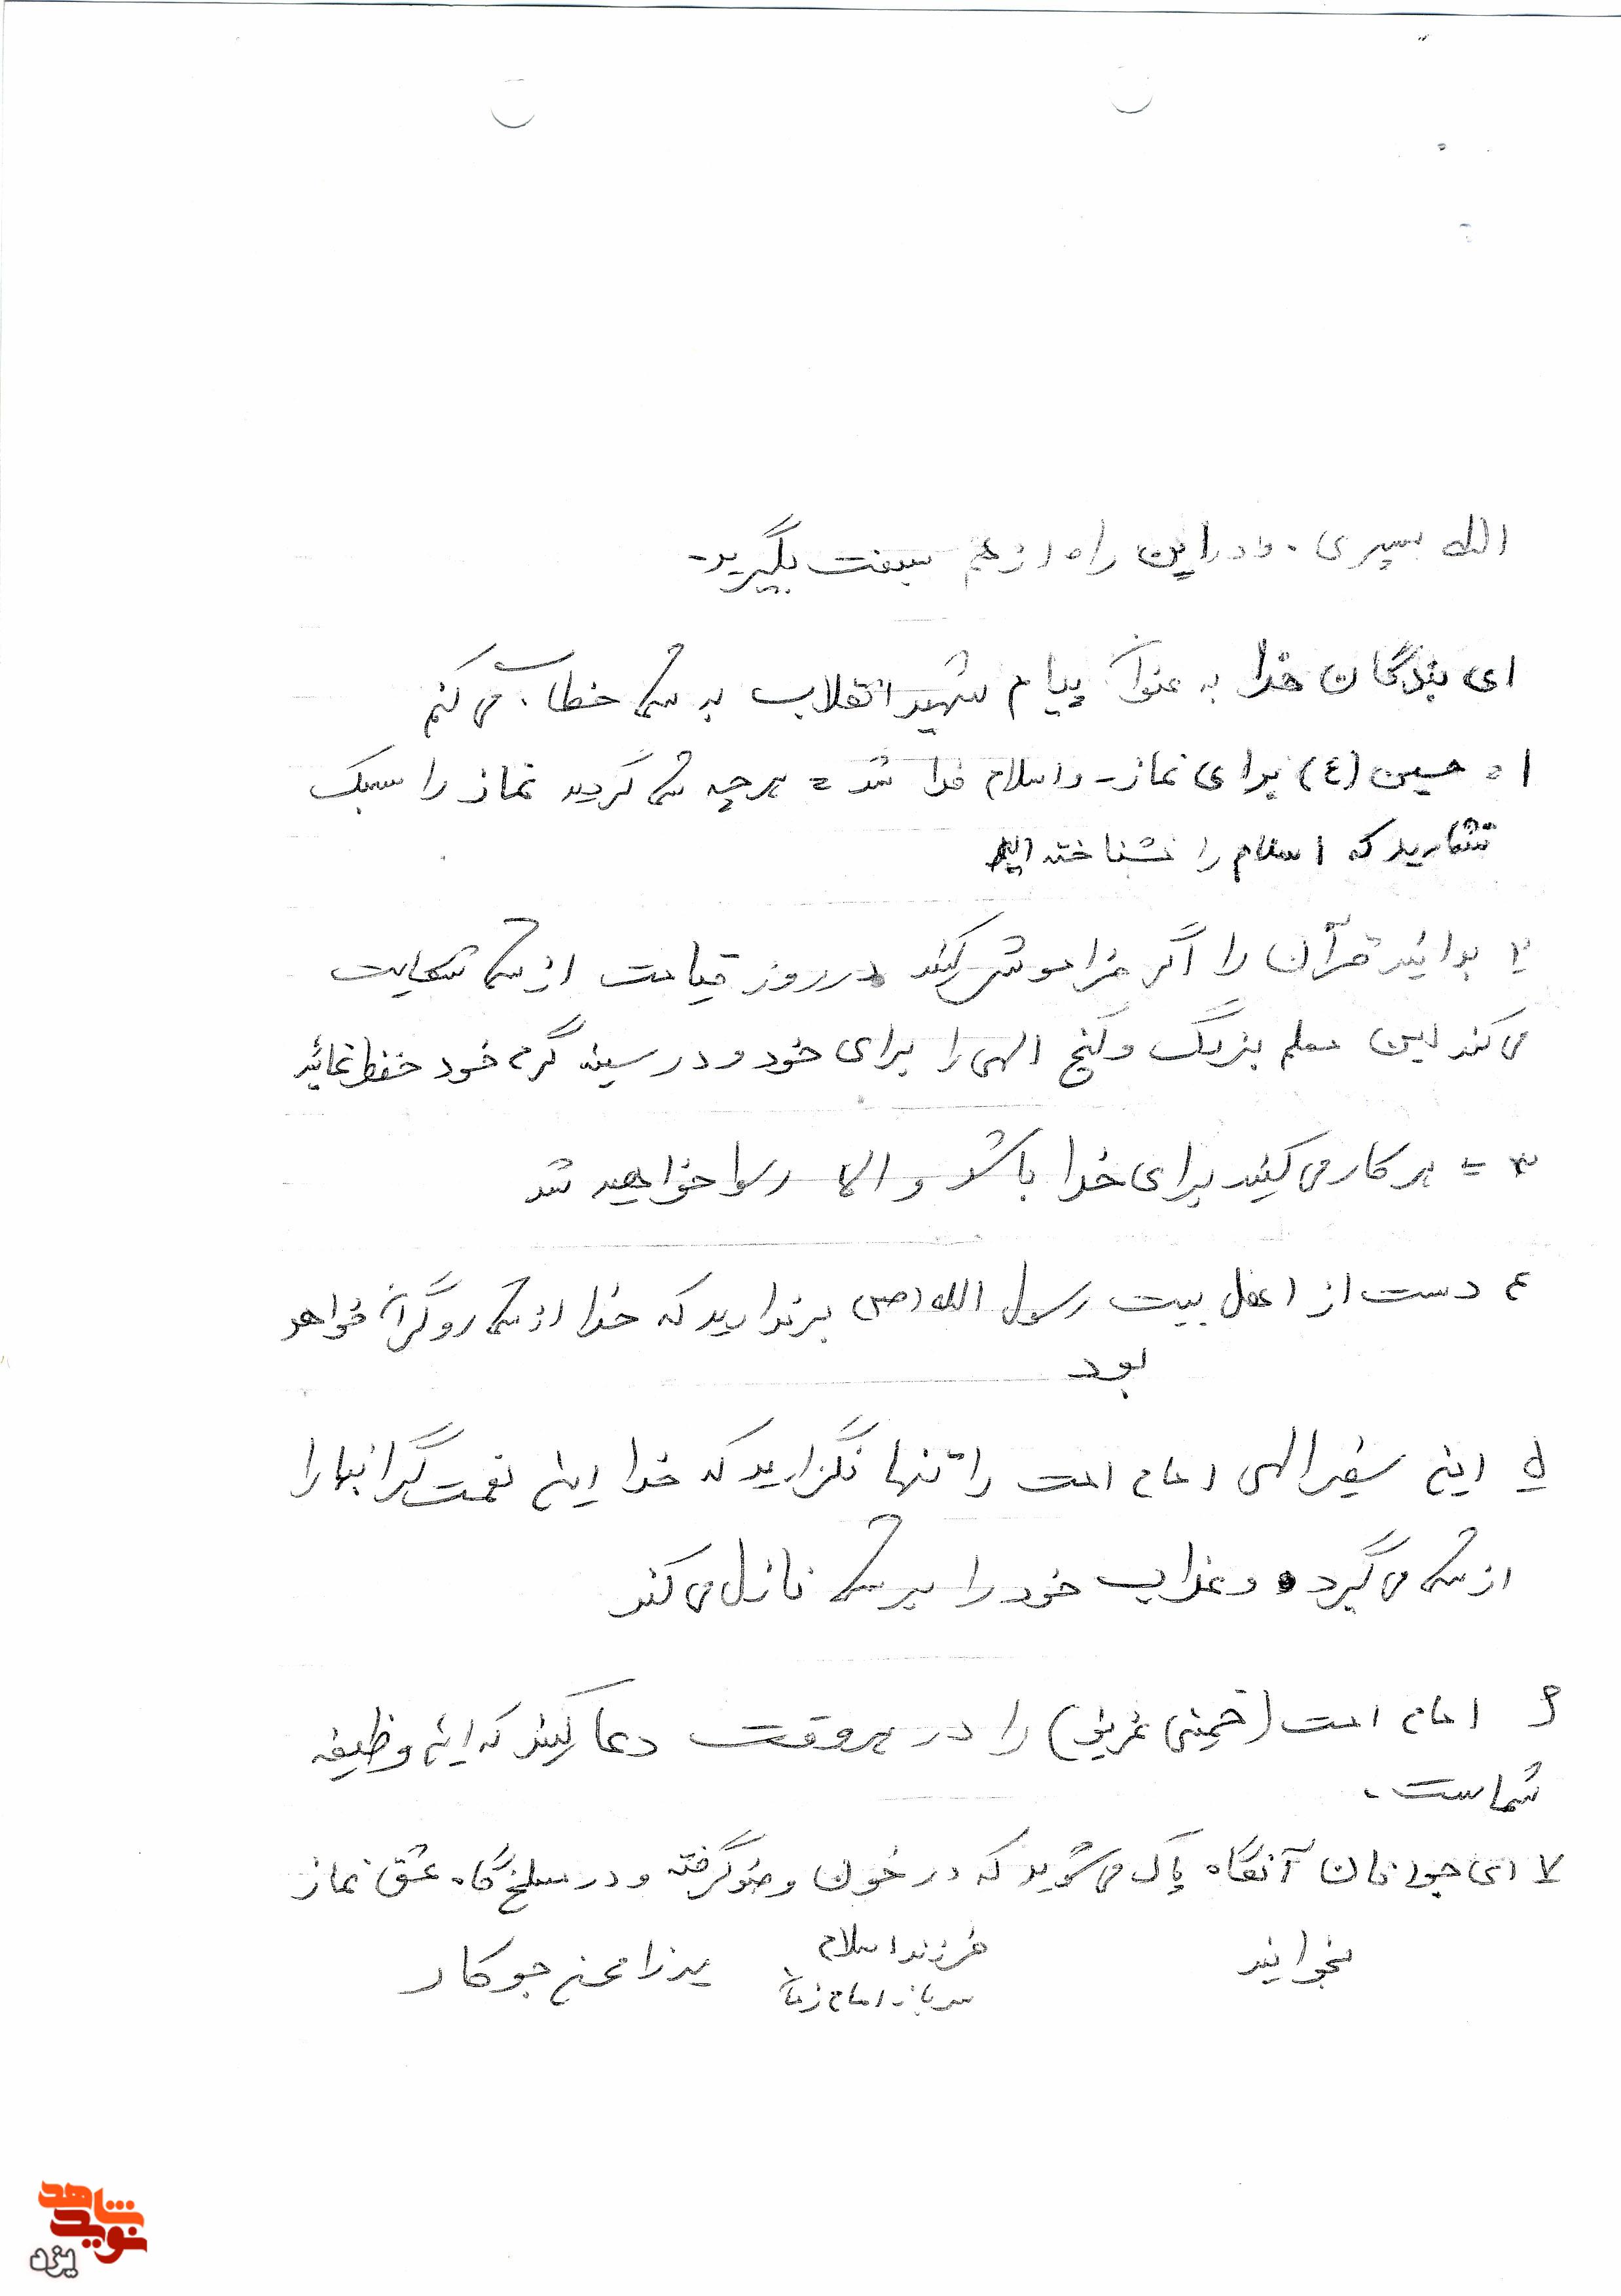 الله بسپری . و در این راه از هم سبقت بگیرید.
ای بندگان خدا به عنوان پیام شهید انقلاب به شما خطاب می کنم
۱ = حسین (ع) برای نماز - و اسلام فدا شد = هر چه شما کردید نماز را سبک
نشمارید که اسلام را نشناخته اید
۲ بدانید قرآن را اگر فراموش کنید در روز قیامت از شما شکایت
می کند این معلم بزرگ و گنج الهی را برای خود و در سینه گرم خود حفظ نمائید
۳ = هر کار می کنید برای خدا باشد و الا رسوا خواهید شد
۴ دست از اهل بیت رسول الله (ص) برندارید که خدا از شما روگردان خواهد
بود
۵ این سفیر الهی امام امت را تنها نگزارید که خدا این نعمت گرانبها را
از شما می گیرد و عذاب خود را بر شما نازل می کند
۶ امام امت (خمینی عزیز) را در هر وقت دعا کنید که این وظیفه
شماست .
۷ ای جوانان آنگاه پاک می شوید که در خون وضو گرفته و در مسلخ گاه عشق نماز
بخوانید
فرزند اسلام
سرباز امام زمان
میرزا محمد جوکار
شاهد
نوید
یزد